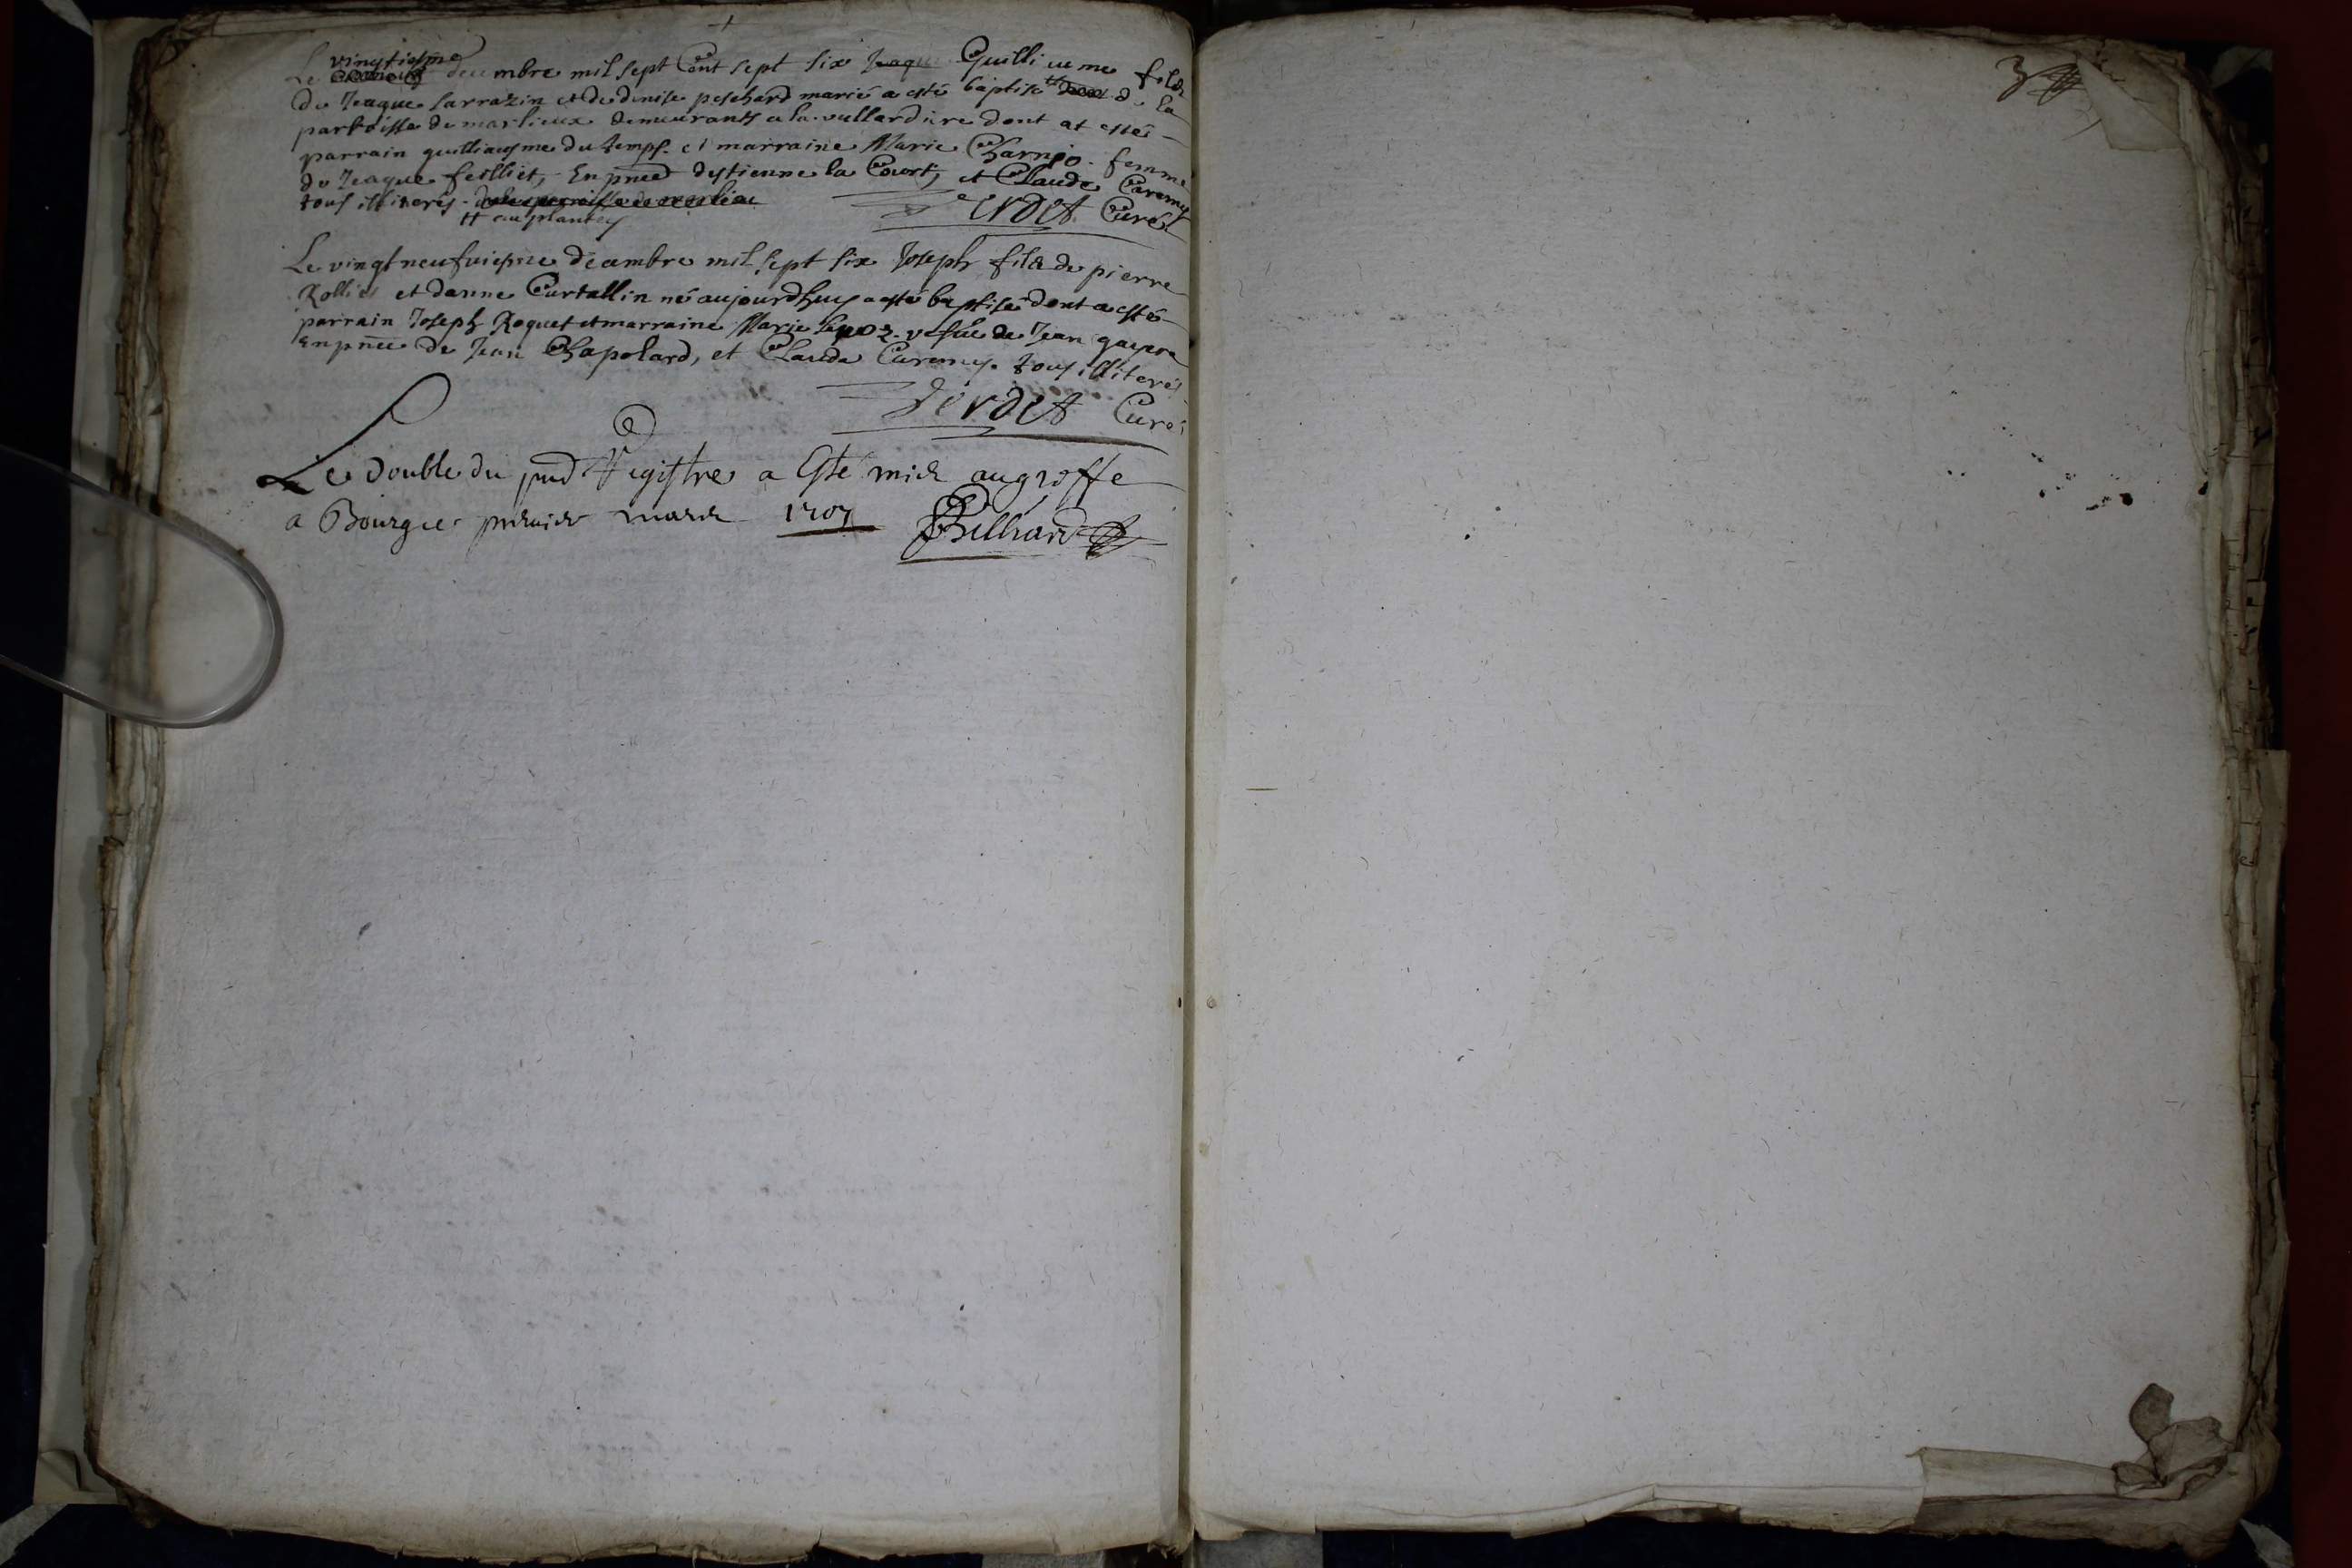 vingtiesme
Le decembre mil sept Cent sept six Jaque Guilliaume fils
de Jeaque Sarrazin et de denise peschard marié a esté baptisé # de la
parroisse de marlieux demeurants a la vullardiere dont at esté
parrain guilliaugme du temps et marraine Marie Charnjo femme
de Jeaque feilliet, En pnce d'estienne la Court, et Claude Caremy
tous illiterés
# au plantey
Verdet Curé
Le vingt neufuiesme decembre mil sept six Joseph fils de pierre
Rollie et danne Curtallin né aujourdhuy a esté baptisé dont a esté
parrain Joseph Roquet et marraine Marie vefue de Jean
En pnce de Jean Chapolard, et Claude Caremy. tous illiterés
Verdet Curé
Le double du pnt Registre a Esté mis au greffe
a Bourg le premier mars 1707 Billiard
3